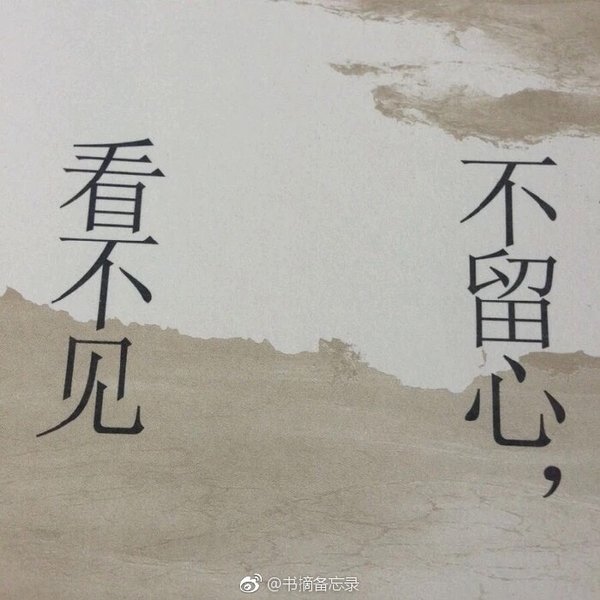 不留心，
看不见
@书摘备忘录